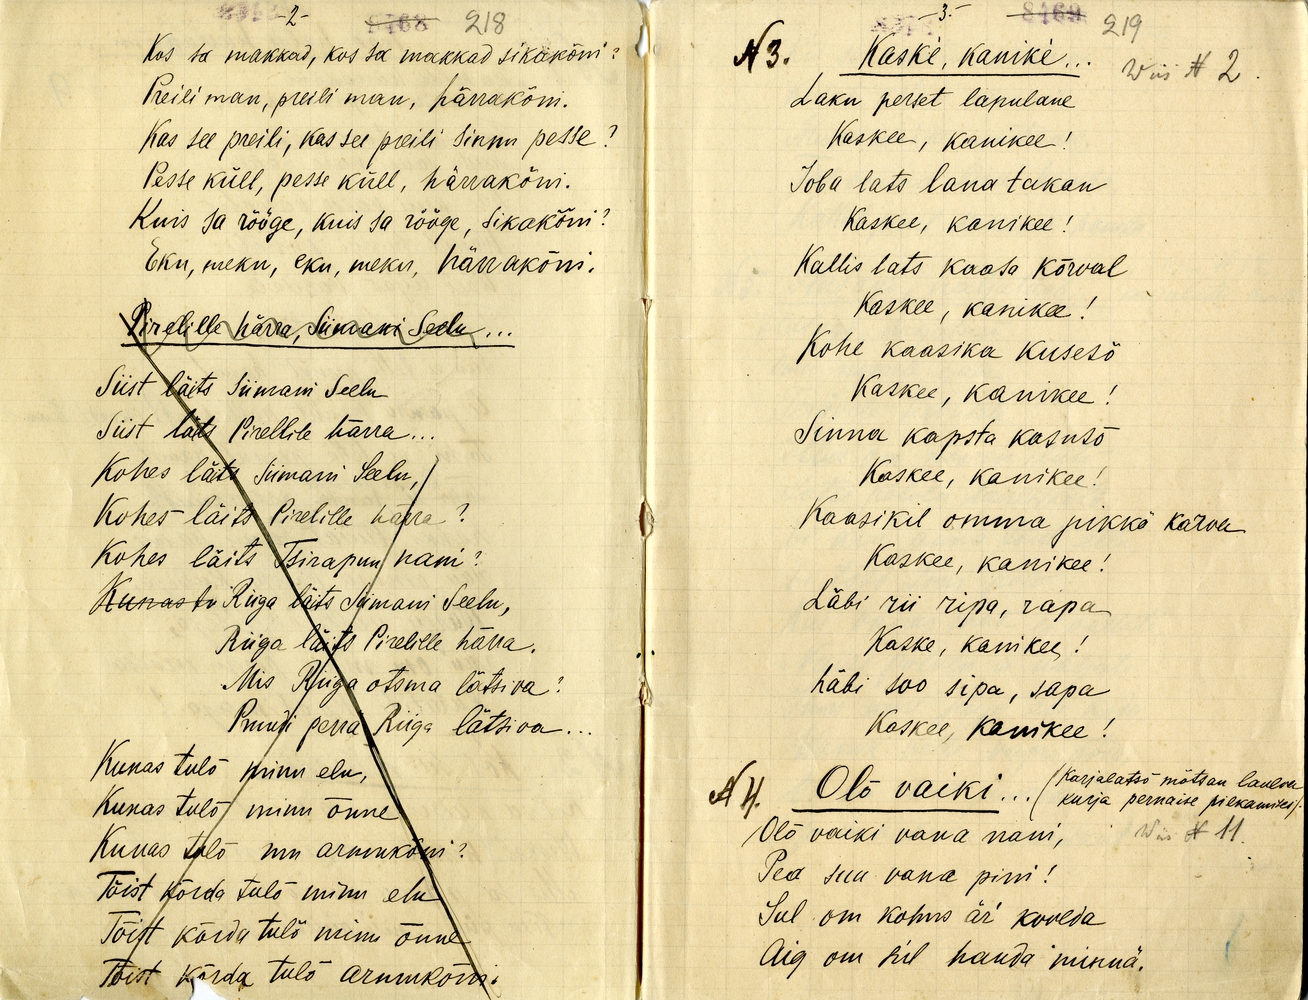 -2-
8468
218
Kos sa makkad, kos sa makkad sikakõni?
Preili man, preili man, härrakõni.
Kas see preili, kas see preili sinnu pesse?
Pesse küll, pesse küll, härrakõni.
Kuis sa rööge, kuis sa rööge, sikakõni?
Eku, meku, eku, meku, härrakõni.
Pirelille härra, Siimani Seelu...
Siist läits Siimani Seelu
Siist läits Pirellile härra...
Kohes läits Siimani Seelu,
Kohes läits Pirelille härra?
Kohes läits Tsirapuu nani?
Kunas tu Riiga läits Siimani Seelu,
Riiga läits Pirelille härra.
Mis Riiga otsma lätsiva?
Pruudi perra Riiga lätsiva...
Kunas tulõ minu elu,
Kunas tulõ minu õnne
Kunas tulõ mu armukõni?
Tõist kõrda tulõ minu elu
Tõist kõrda tulõ minu õnne
Tõist kõrda tulõ armukõni.
-3-
8469
219
N 3.
Kaske, kanike...
Wiis N 2.
Laku perset lapulane
Kaskee, kanikee!
Joba lats lanatakan
Kaskee, kanikee!
Kallis lats kaasa kõrval
Kaskee, kanikee!
Kohe kaasika kusesõ
Kaskee, kanikee!
Sinna kapsta kasusõ
Kaskee, kanikee!
Kaasikil omma pikkä karva
Kaskee, kanikee!
Läbi rii ripa, rapa
Kaske, kanikee!
Läbi soo sipa, sapa
Kaskee, kanikee!
N 4.
Olõ vaiki...
(Karjalatsõ mõtsan laulva
kurja pernaise pilkamises).
Wiis N 11.
Olõ vaiki vana nani,
Pea suu vana pini!
Sul om kohus är' koolda
Aig om sul hauda minnä.